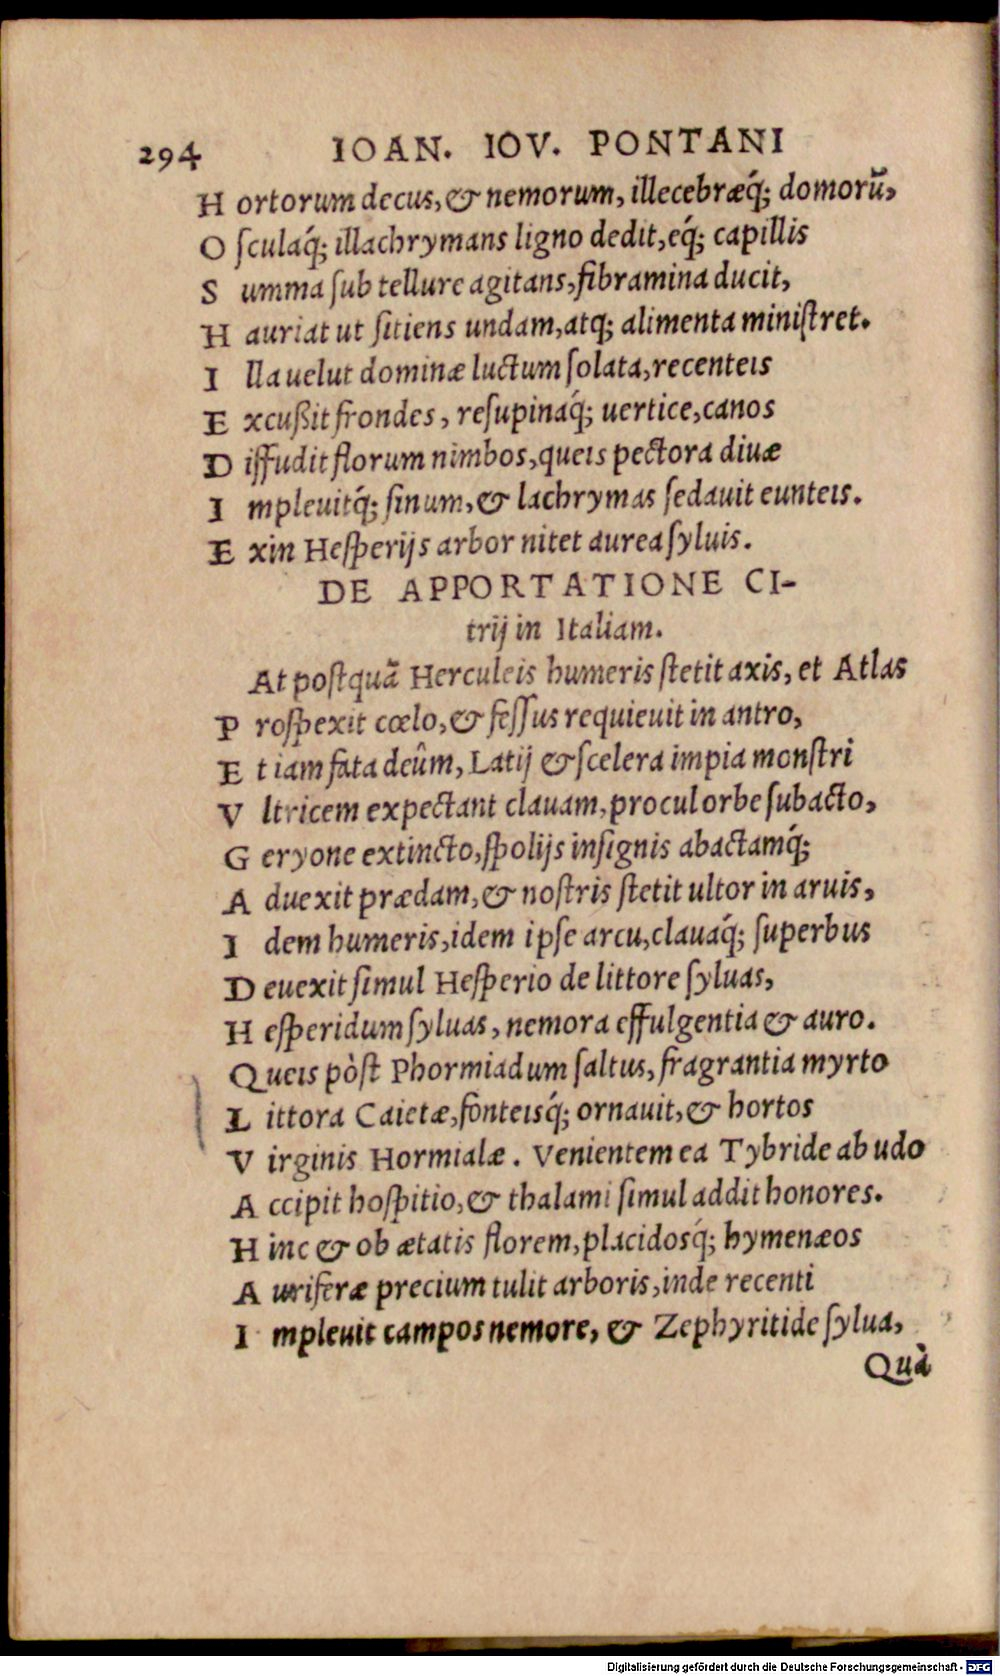 294 IOAN. IOV. PONTANI
H ortorum decus, & nemorum, illecebræq́; domorũ,
O ſculaq́; illachrymans ligno dedit, eq́; capillis
S umma ſub tellure agitans, fibramina ducit,
H auriat ut ſitiens undam, atq; alimenta miniſtret.
I lla uelut dominæ luctum ſolata, recenteis
E xcußit frondes, reſupinaq́; uertice, canos
D iffudit florum nimbos, queis pectora diuæ
I mpleuitq́; ſinum, & lachrymas ſedauit eunteis.
E xin Heſperijs arbor nitet aurea ſyluis.
DE APPORTATIONE CI-
trij in Italiam.
At poſtquã Herculeis humeris ſtetit axis, et Atlas
P roſpexit cœlo, & feſſus requieuit in antro,
E t iam fata deûm, Latij & ſcelera impia monſtri
V ltricem expectant clauam, procul orbe ſubacto,
G eryone extincto, ſpolijs inſignis abactamq́;
A duexit prædam, & noſtris ſtetit ultor in aruis,
I dem humeris, idem ipſe arcu, clauaq́; ſuperbus
D euexit ſimul Heſperio de littore ſyluas,
H eſperidum ſyluas, nemora effulgentia & auro.
Queis pòſt Phormiadum ſaltus, fragrantia myrto
L ittora Caietæ, fonteisq́; ornauit, & hortos
V irginis Hormialæ. Venientem ea Tybride ab udo
A ccipit hoſpitio, & thalami ſimul addit honores.
H inc & ob ætatis florem, placidosq́; hymenæos
A uriferæ precium tulit arboris, inde recenti
I mpleuit campos nemore, & Zephyritide ſylua,
Quà
Digitalisierung gefördert durch die Deutsche Forschungsgemeinschaft - DFG